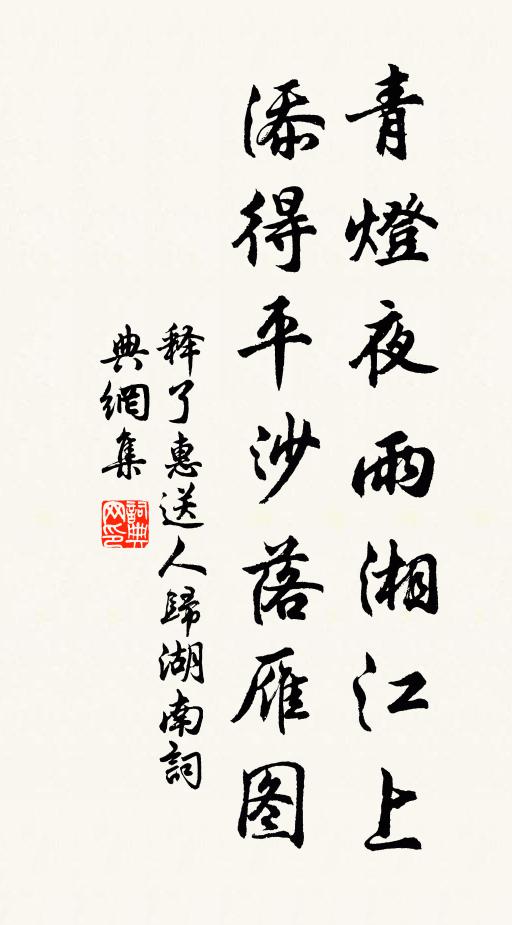 青燈夜雨湘江上
添得平沙落雁图
释了惠送人歸湖南詞
典網集
詞典网印